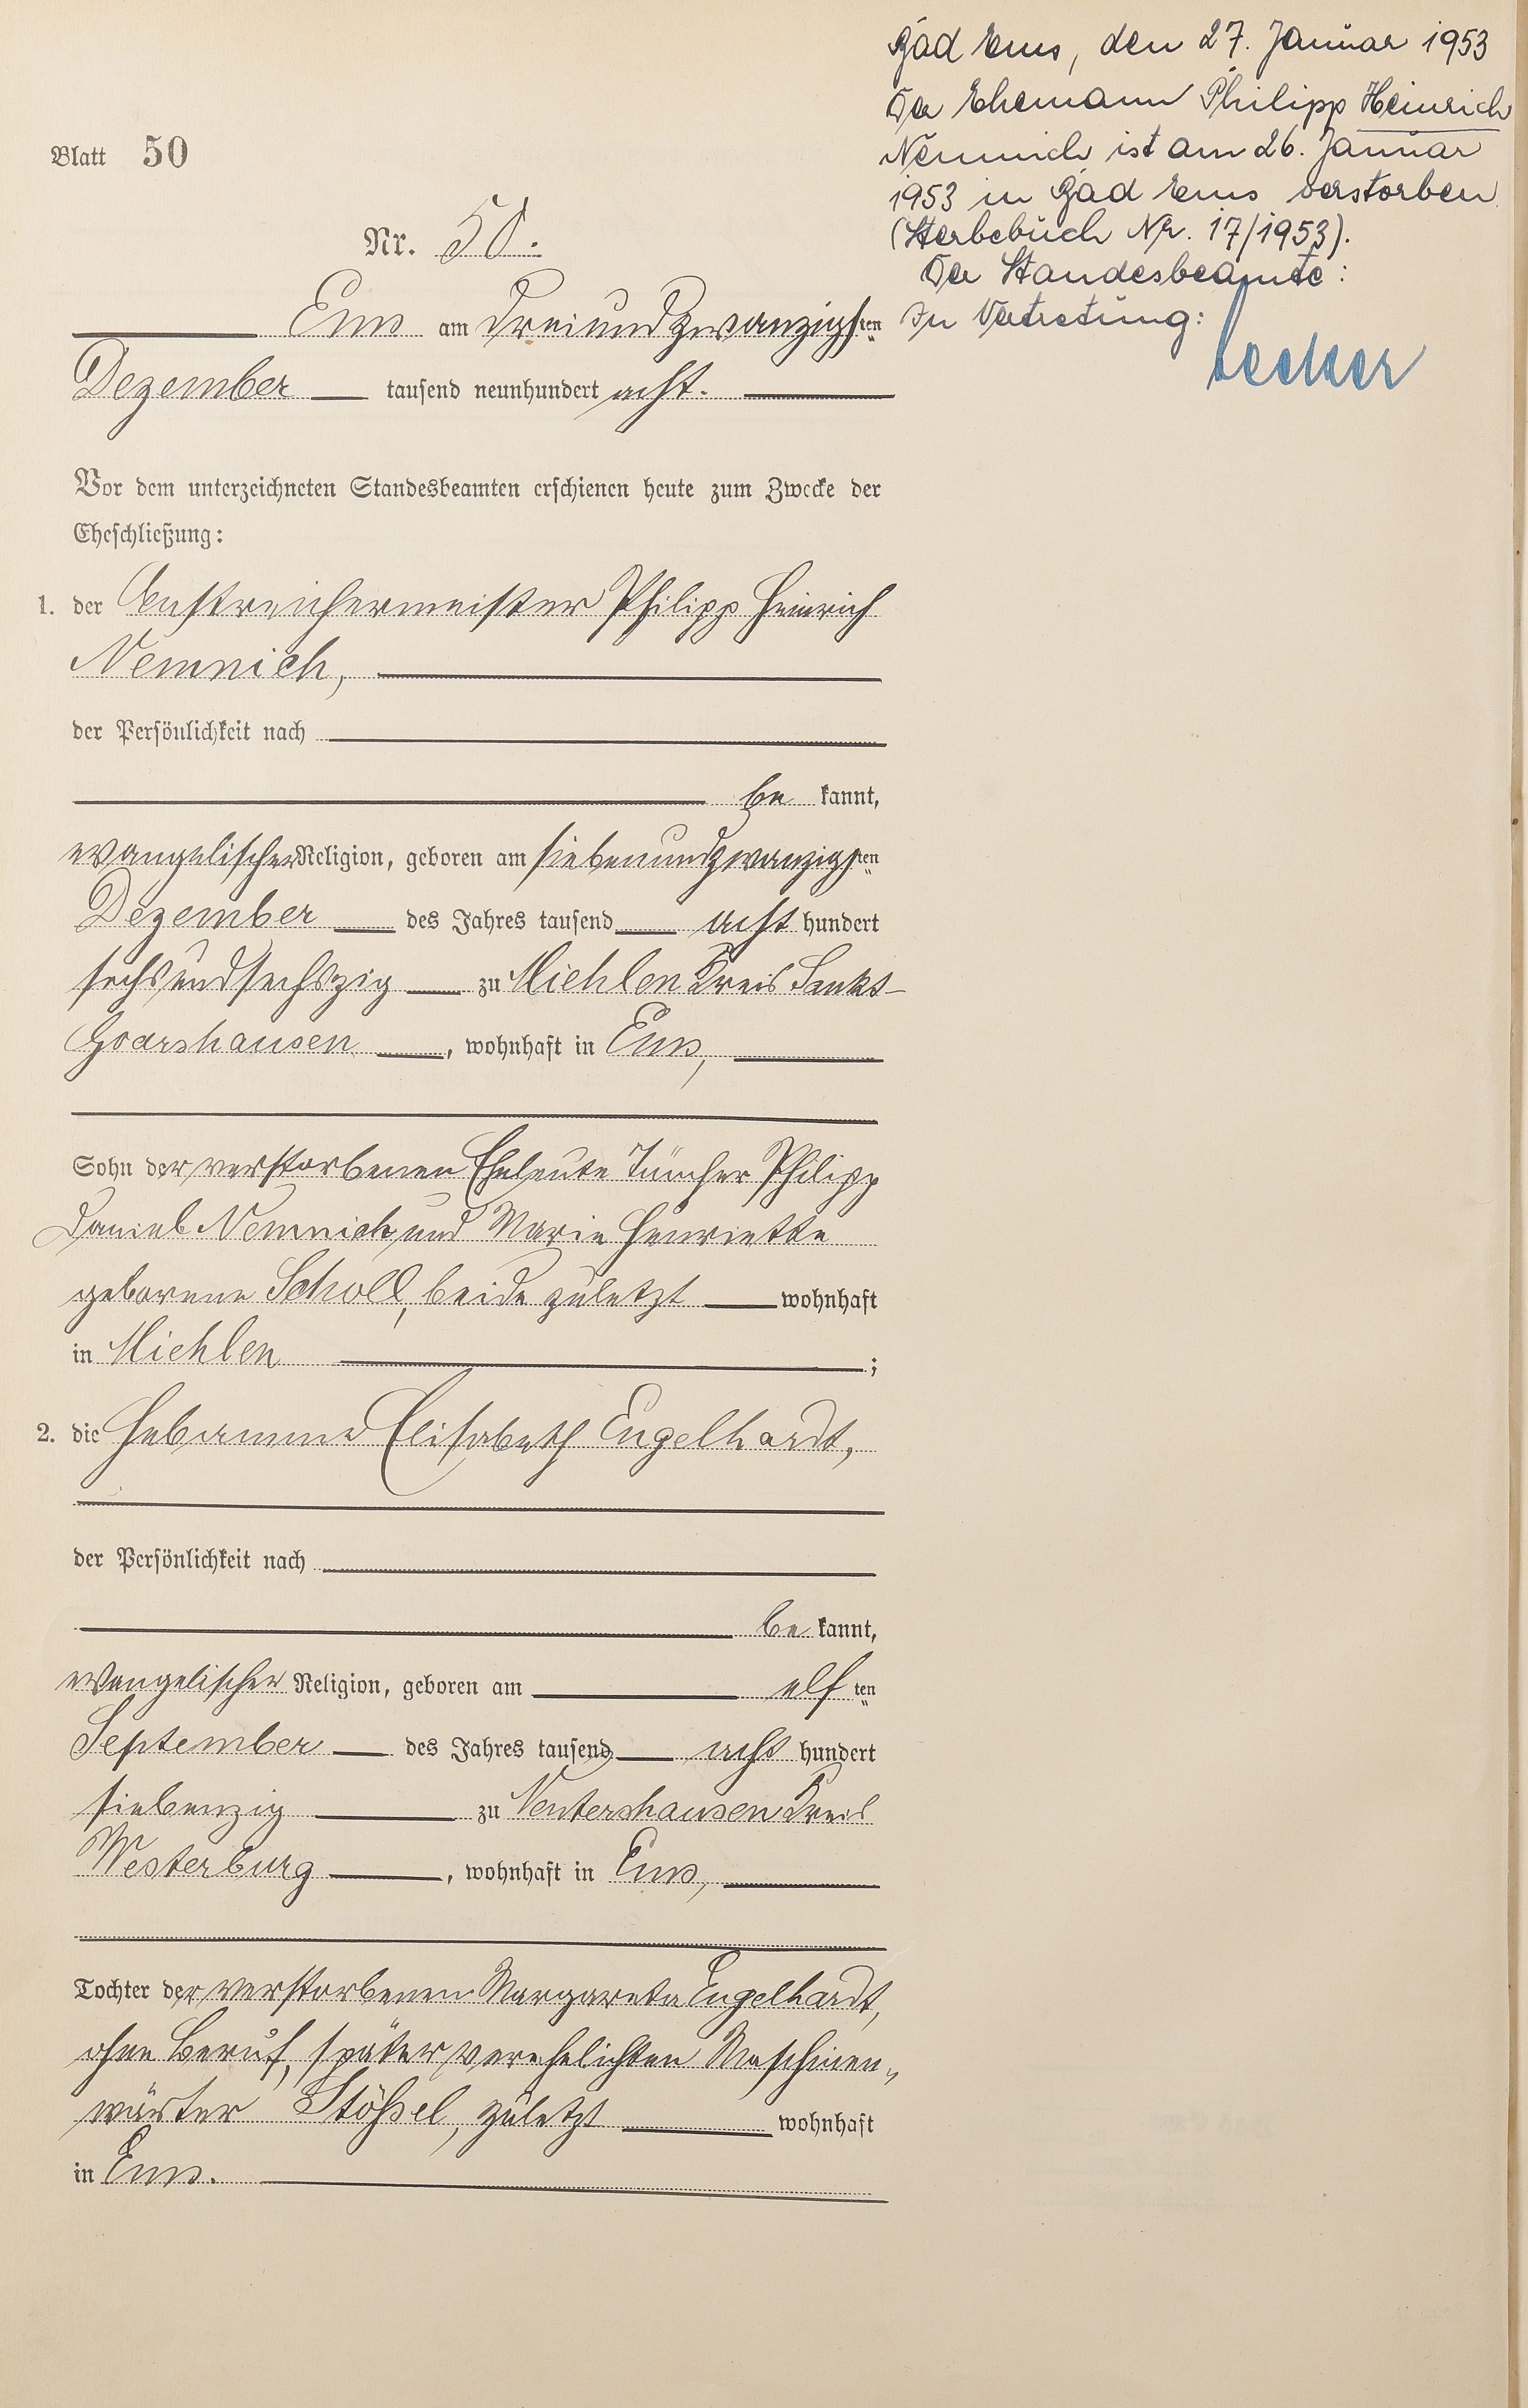 Blatt 50
Nr. 50.
Ems am dreiundzwanzigsten
Dezember tausend neunhundert acht.
Vor dem unterzeichneten Standesbeamten erschienen heute zum Zwecke der
Eheschließung:
1. der Anstreichermeister Philipp Heinrich
Nemnich,
der Persönlichkeit nach
be kannt,
evangelischer Religion, geboren am siebenundzwanzigsten
Dezember des Jahres tausend acht hundert
sechsundsechszig zu Miehlen Kreis Sankt-
Goarshausen, wohnhaft in Ems,
Sohn der verstorbenen Eheleute Tüncher Philipp
Daniel Nemnich und Marie Henriette
geborene Scholl, beide zuletzt wohnhaft
in Miehlen ;
2. die Hebamme Elisabeth Engelhardt,
der Persönlichkeit nach
be kannt,
evangelischer Religion, geboren am elf ten
September des Jahres tausend acht hundert
siebenzig zu Nentershausen Kreis
Westerburg, wohnhaft in Ems,
Tochter der verstorbenen Margareta Engelhardt,
ohne Beruf, später verehelichten Maschinen„
wärter Stößel, zuletzt wohnhaft
in Ems.
Bad Ems, den 27. Januar 1953
Der Ehemann Philipp Heinrich
Nemnich ist am 26. Januar
1953 in Bad Ems verstorben
(Sterbebuch Nr. 17/1953).
Der Standesbeamte:
In Vertretung:
Becker